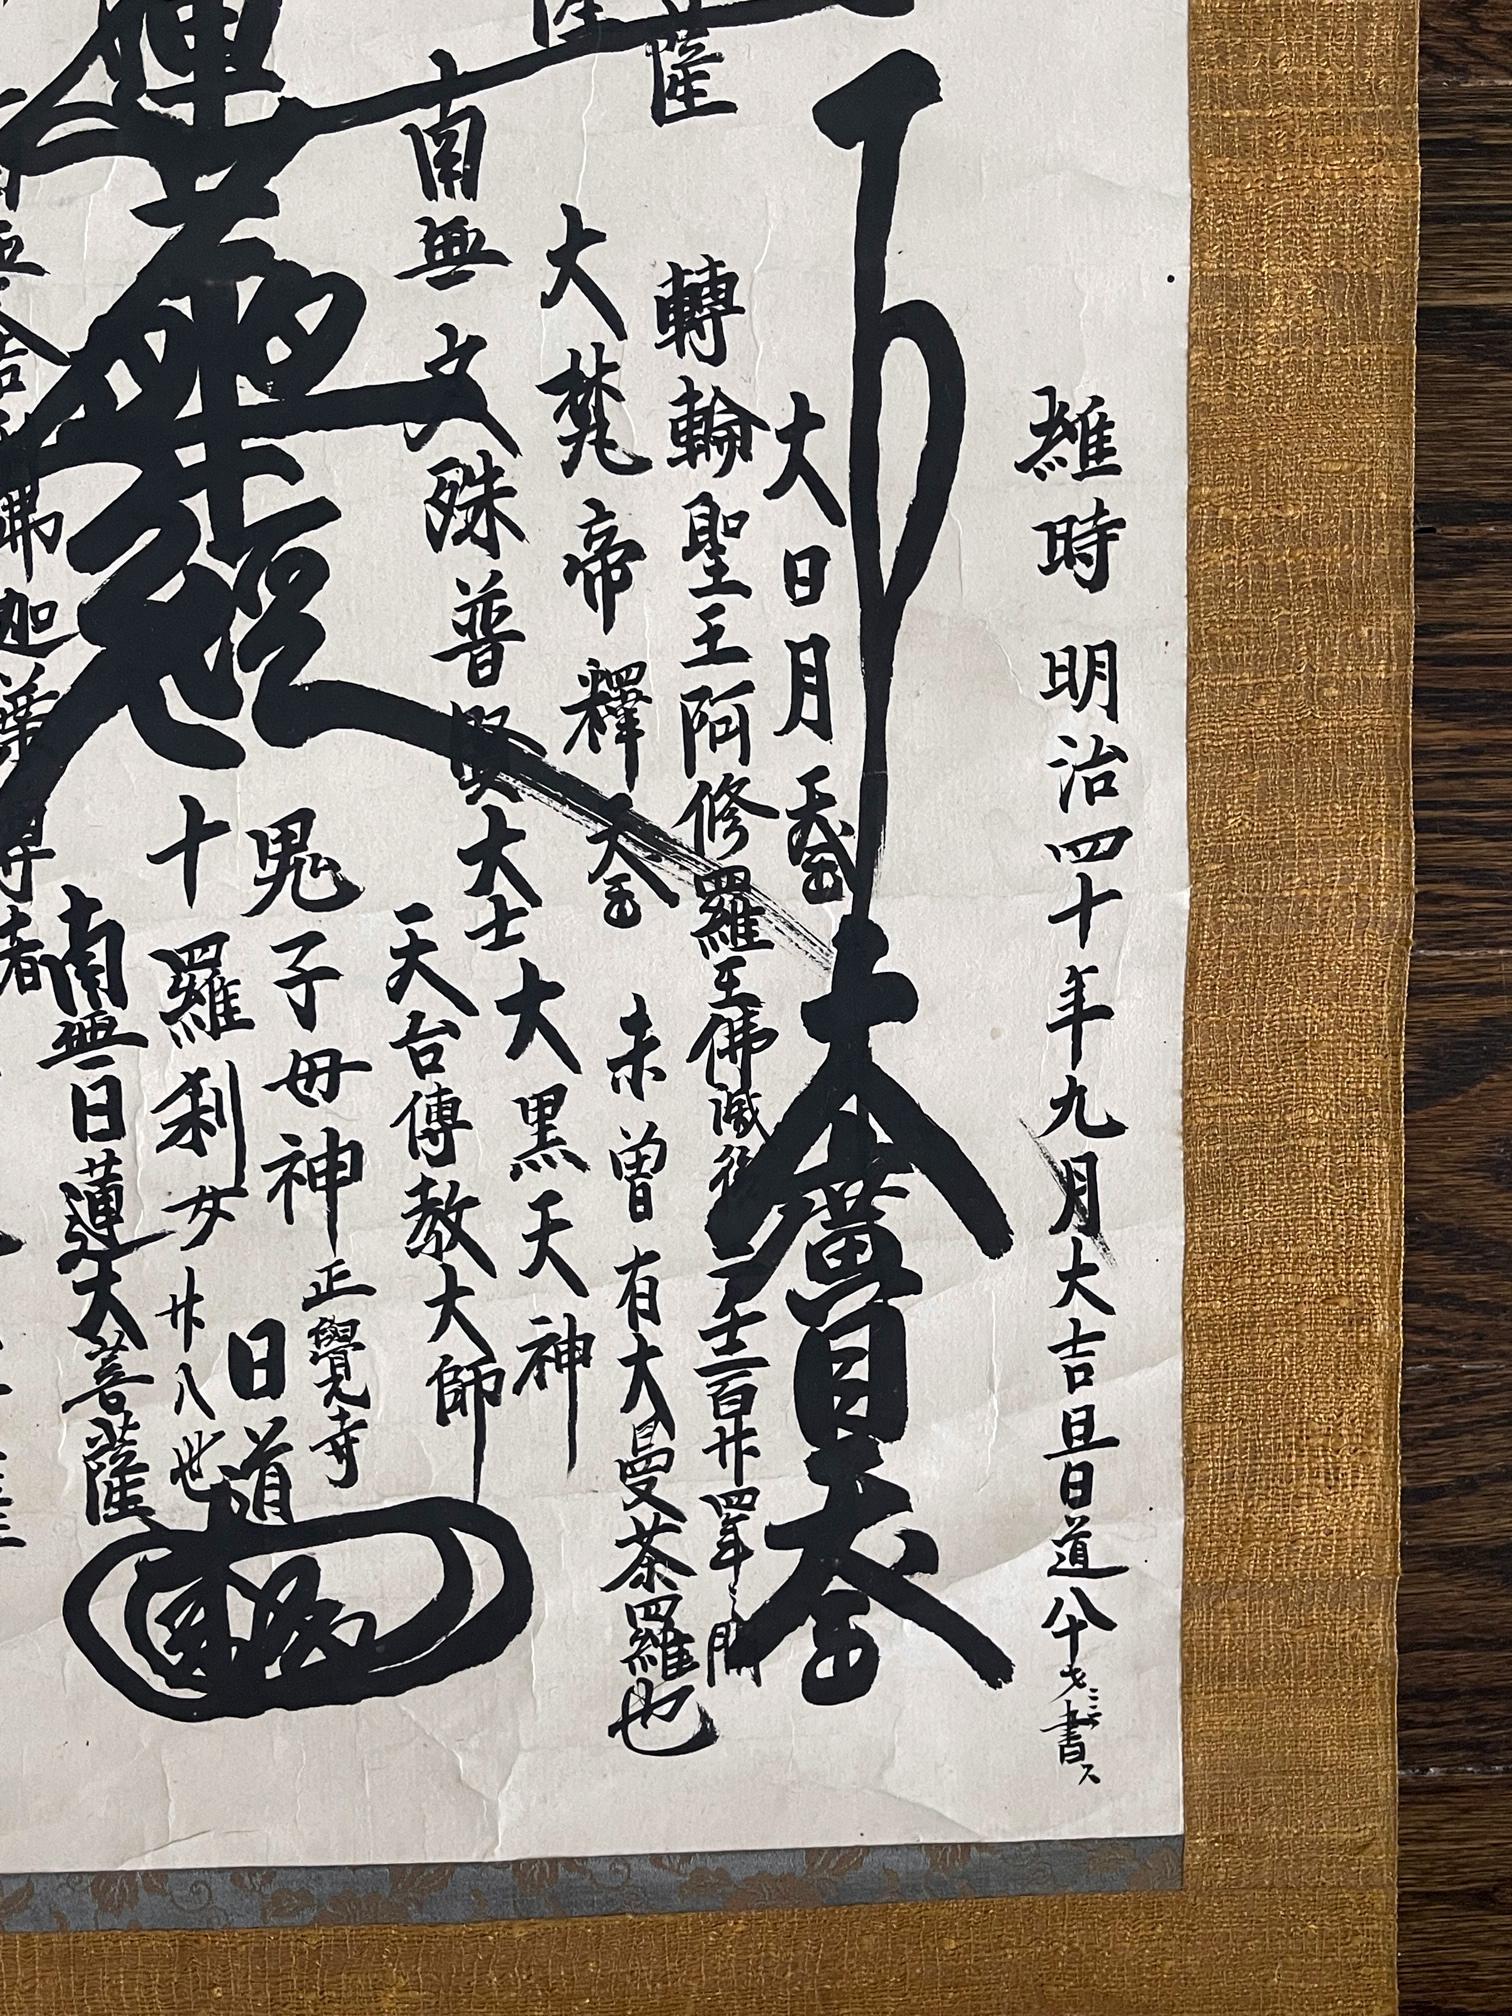 維時 明治四十年九月大吉旦日道八十才 書ス
大廣目天王
大日月天王
轉輪聖王阿修羅王佛滅後二千二百廿四年之間
未曽有大曼荼羅也
大梵帝釋天王
大黒天神
南無文殊普賢大士
天台傳教大師
鬼子母神
正覺寺
日道
十羅刹女
廿八世
蓮華經
南無日蓮大菩薩